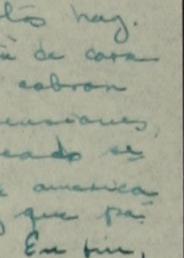 tos hay.
de cara
cobran
ensiones,
eado se
america
que pa
En fin,